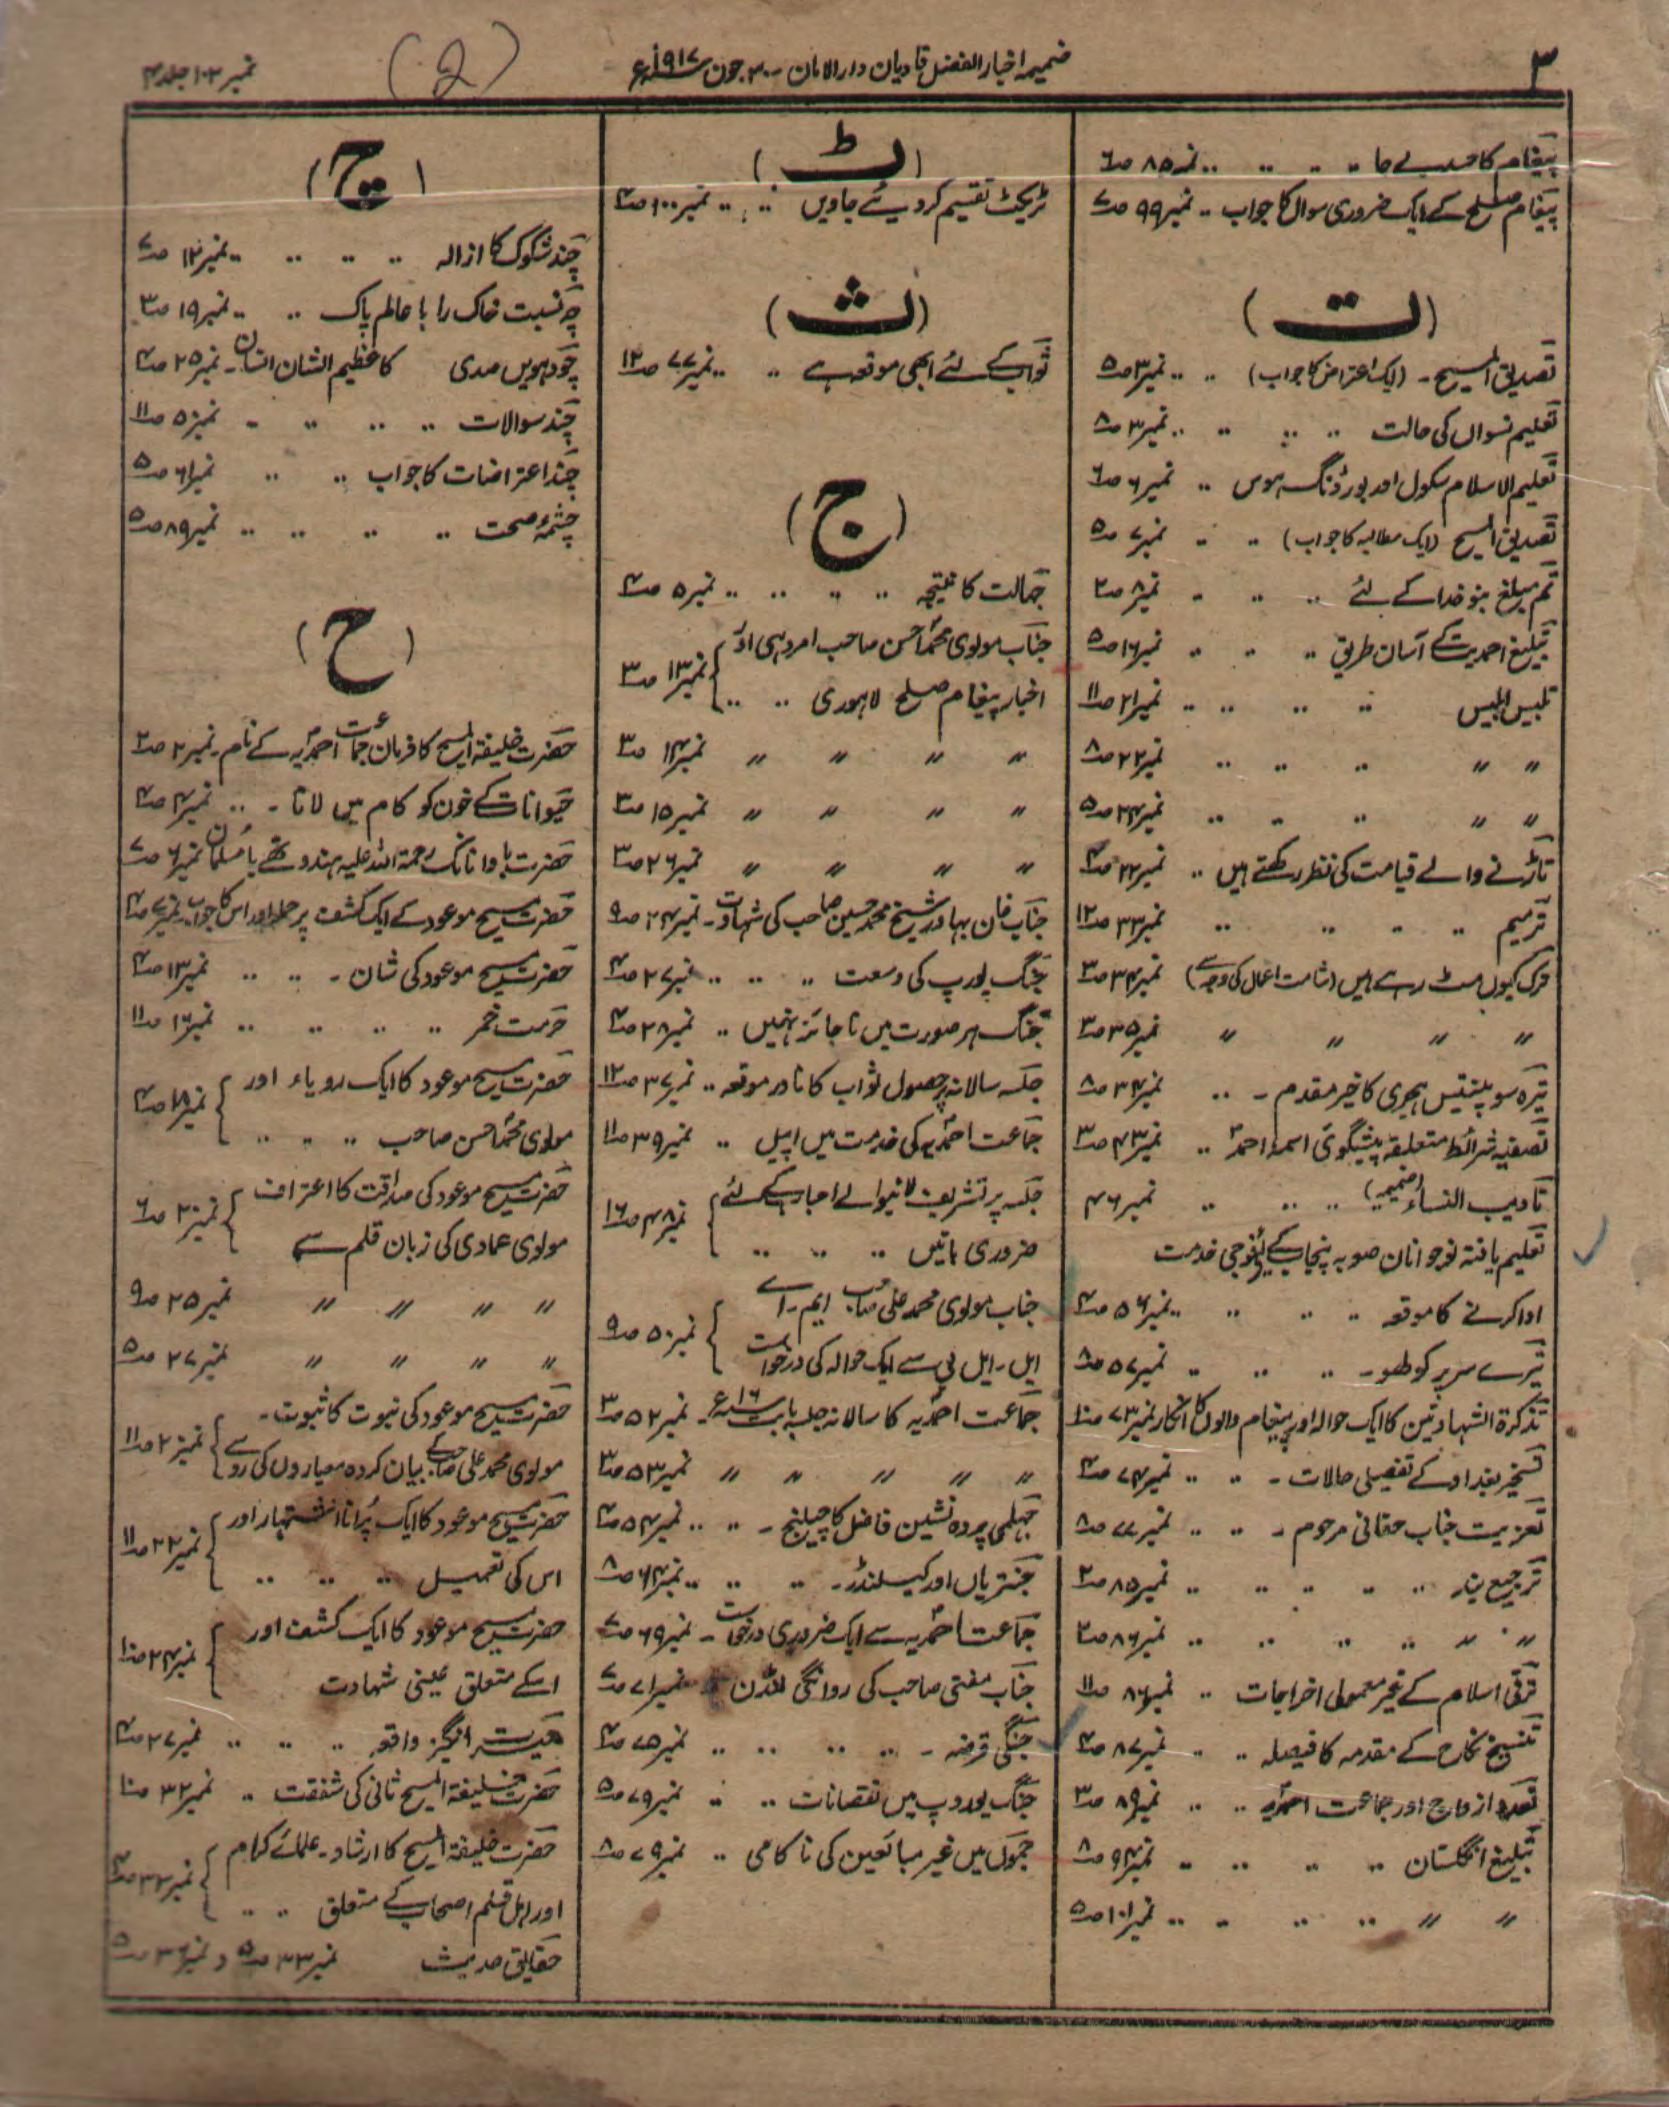 ۳
ضمیمہ اخبار الفضل قادیان دارالامان ۔ ۳۰ جون ۱۹۱۷ء
(2)
نمبر ۱۰۲ جلد ۴
پیغام کا حسد بے جا .. .. .. .. نمبر ۸۵ صـ ۶
پیغام صلح کے ایک ضروری سوال کا جواب .. نمبر ۹۹ صـ ۷
(ت)
تصدیق المسیح ۔ (ایک اعتراض کا جواب) .. .. نمبر ۳ صـ ۵
تعلیم نسواں کی حالت .. .. .. .. نمبر ۳ صـ ۸
تعلیم الاسلام سکول اور بورڈنگ ہوس .. نمبر ۶ صـ ۶
تصدیق المسیح (ایک مطالبہ کا جواب) .. .. نمبر ۷ صـ ۵
تم مبلغ بنو خدا کے لئے .. .. .. نمبر ۸ صـ ۲
تبلیغ احمدیت کے آسان طریق .. .. .. نمبر ۱۶ صـ ۵
تلبیس ابلیس .. .. .. .. نمبر ۲۱ صـ ۱۱
〃 〃 .. .. .. نمبر ۲۲ صـ ۸
〃 〃 .. .. .. نمبر ۲۴ صـ ۵
تاڑنے والے قیامت کی نظر رکھتے ہیں .. نمبر ۲۲ صـ ۴
ترمیم .. .. .. .. نمبر ۳۳ صـ ۱۲
ترک کیوں مٹ رہے ہیں (شامت اعمال کی وجہ سے) نمبر ۳۴ صـ ۳
〃 〃 〃 〃 نمبر ۳۵ صـ ۳
تیرہ سو پینتیس ہجری کا خیر مقدم ۔ .. نمبر ۳۴ صـ ۸
تصفیہ شرائط متعلقہ پیشگوئی اسمہ احمد .. نمبر ۴۳ صـ ۳
تادیب النساء (ضمیمہ) .. .. .. نمبر ۴۶
تعلیم یافتہ نوجوانان صوبہ پنجاب کے لئے فوجی خدمت
ادا کرنے کا موقعہ .. .. .. .. نمبر ۵۶ صـ ۴
تیرے سر پر کوطھو۔ .. .. .. نمبر ۵۷ صـ ۸
تذکرۃ الشہادتین کا ایک حوالہ اور پیغام والوں کا انکار نمبر ۷۳ صـ ۱۰
تسخیر بغداد کے تفصیلی حالات ۔ .. .. نمبر ۷۴ صـ ۴
تعزیت جناب حقانی مرحوم ۔ .. .. نمبر ۷۷ صـ ۸
ترجیع بند .. .. .. .. .. نمبر ۸۵ صـ ۲
〃 〃 .. .. .. .. نمبر ۸۶ صـ ۲
ترقی اسلام کے غیر معمولی اخراجات .. نمبر ۸۶ صـ ۱۱
تنسیخ نکاح کے مقدمہ کا فیصلہ .. .. نمبر ۸۷ صـ ۴
تعدد ازدواج اور جماعت احمدیہ .. .. نمبر ۸۹ صـ ۳
تبلیغ انگلستان .. .. .. .. نمبر ۹۴ صـ ۸
〃 〃 .. .. .. .. نمبر ۱۰۱ صـ ۵
(ٹ)
ٹریکٹ تقسیم کر دیئے جاویں .. .. .. نمبر ۱۰۰ صـ ۴
(ث)
ثواب کے لئے ابھی موقعہ ہے .. .. نمبر ۷۷ صـ ۱۲
(ج)
جہالت کا نتیجہ .. .. .. .. نمبر ۵ صـ ۴
جناب مولوی محمد احسن صاحب امروہی اور
اخبار پیغام صلح لاہوری .. .. نمبر ۱۳ صـ ۳
〃 〃 〃 〃 نمبر ۱۴ صـ ۳
〃 〃 〃 〃 نمبر ۱۵ صـ ۳
〃 〃 〃 〃 نمبر ۲۶ صـ ۳
جناب خان بہادر شیخ محمد حسین صاحب کی شہادت۔ نمبر ۲۴ صـ ۹
جنگ یورپ کی وسعت .. .. .. نمبر ۲۷ صـ ۴
جنگ ہر صورت میں ناجائز نہیں .. نمبر ۲۸ صـ ۴
جلسہ سالانہ پر حصول ثواب کا نادر موقعہ .. نمبر ۳۷ صـ ۱۲
جماعت احمدیہ کی خدمت میں اپیل .. نمبر ۳۹ صـ ۱۱
جلسہ پر تشریف لانیوالے احباب کے لئے
ضروری باتیں .. .. .. نمبر ۴۸ صـ ۱۶
جناب مولوی محمد علی صاحب ایم۔ اے
ایل۔ ایل بی سے ایک حوالہ کی درخواست نمبر ۵۰ صـ ۹
جماعت احمدیہ کا سالانہ جلسہ بابت ۱۶ء۔ نمبر ۵۲ صـ ۳
〃 〃 〃 〃 〃 نمبر ۵۳ صـ ۳
جہلمی پردہ نشین فاضل کا چیلنج ۔ .. .. نمبر ۵۴ صـ ۴
جنتریاں اور کیلنڈر۔ .. .. .. نمبر ۶۴ صـ ۸
جماعت احمدیہ سے ایک ضروری درخواست۔ نمبر ۶۹ صـ ۷
جناب مفتی صاحب کی روانگی لنڈن نمبر ۷۱ صـ ۷
جنگی قرضہ ۔ .. .. .. .. نمبر ۷۵ صـ ۴
جنگ یورپ میں نقصانات .. .. نمبر ۷۹ صـ ۵
جموں میں غیر مبائعین کی ناکامی .. نمبر ۷۹ صـ ۸
(چ)
چند شکوک کا ازالہ .. .. .. .. نمبر ۱۲ صـ ۷
چہ نسبت خاک را با عالم پاک .. .. نمبر ۱۹ صـ ۳
چودہویں صدی کا عظیم الشان انسان۔ نمبر ۲۵ صـ ۴
چند سوالات .. .. .. .. نمبر ۵۰ صـ ۱۱
چند اعتراضات کا جواب .. .. نمبر ۶۱ صـ ۵
چشمۂ صحت .. .. .. .. نمبر ۸۹ صـ ۵
(ح)
حضرت خلیفۃ المسیح کا فرمان جماعت احمدیہ کے نام۔ نمبر ۲ صـ ۲
حیوانات کے خون کو کام میں لانا ۔ .. نمبر ۴ صـ ۴
حضرت باوا نانک رحمۃ اللہ علیہ ہندو تھے یا مسلمان نمبر ۶ صـ ۷
حضرت مسیح موعود کے ایک کشف پر حملہ اور اس کا جواب۔ نمبر ۷ صـ ۴
حضرت مسیح موعود کی شان ۔ .. .. نمبر ۱۳ صـ ۴
حرمت خمر .. .. .. .. نمبر ۱۶ صـ ۱۱
حضرت مسیح موعود کا ایک رویاء اور
مولوی محمد احسن صاحب .. .. .. نمبر ۱۸ صـ ۴
حضرت مسیح موعود کی صداقت کا اعتراف
مولوی عمادی کی زبان قلم سے نمبر ۲۰ صـ ۶
〃 〃 〃 〃 نمبر ۲۵ صـ ۹
〃 〃 〃 〃 نمبر ۲۷ صـ ۵
حضرت مسیح موعود کی نبوت کا ثبوت۔
مولوی محمد علی صاحب کے بیان کردہ معیاروں کی رو سے نمبر ۲۰ صـ ۱۱
حضرت مسیح موعود کا ایک پرانا اشتہار اور
اس کی تعمیل .. .. .. نمبر ۲۲ صـ ۱۱
حضرت مسیح موعود کا ایک کشف اور
اسکے متعلق عینی شہادت نمبر ۲۴ صـ ۱۰
حیرت انگیز واقعہ .. .. .. نمبر ۲۷ صـ ۴
حضرت خلیفۃ المسیح ثانی کی شفقت .. نمبر ۳۲ صـ ۱۰
حضرت خلیفۃ المسیح کا ارشاد۔ علمائے کرام
اور اہل قلم اصحاب کے متعلق .. .. نمبر ۳۲
حقایق حدیث نمبر ۳۳ صـ ۵ و نمبر ۳۶ صـ ۵